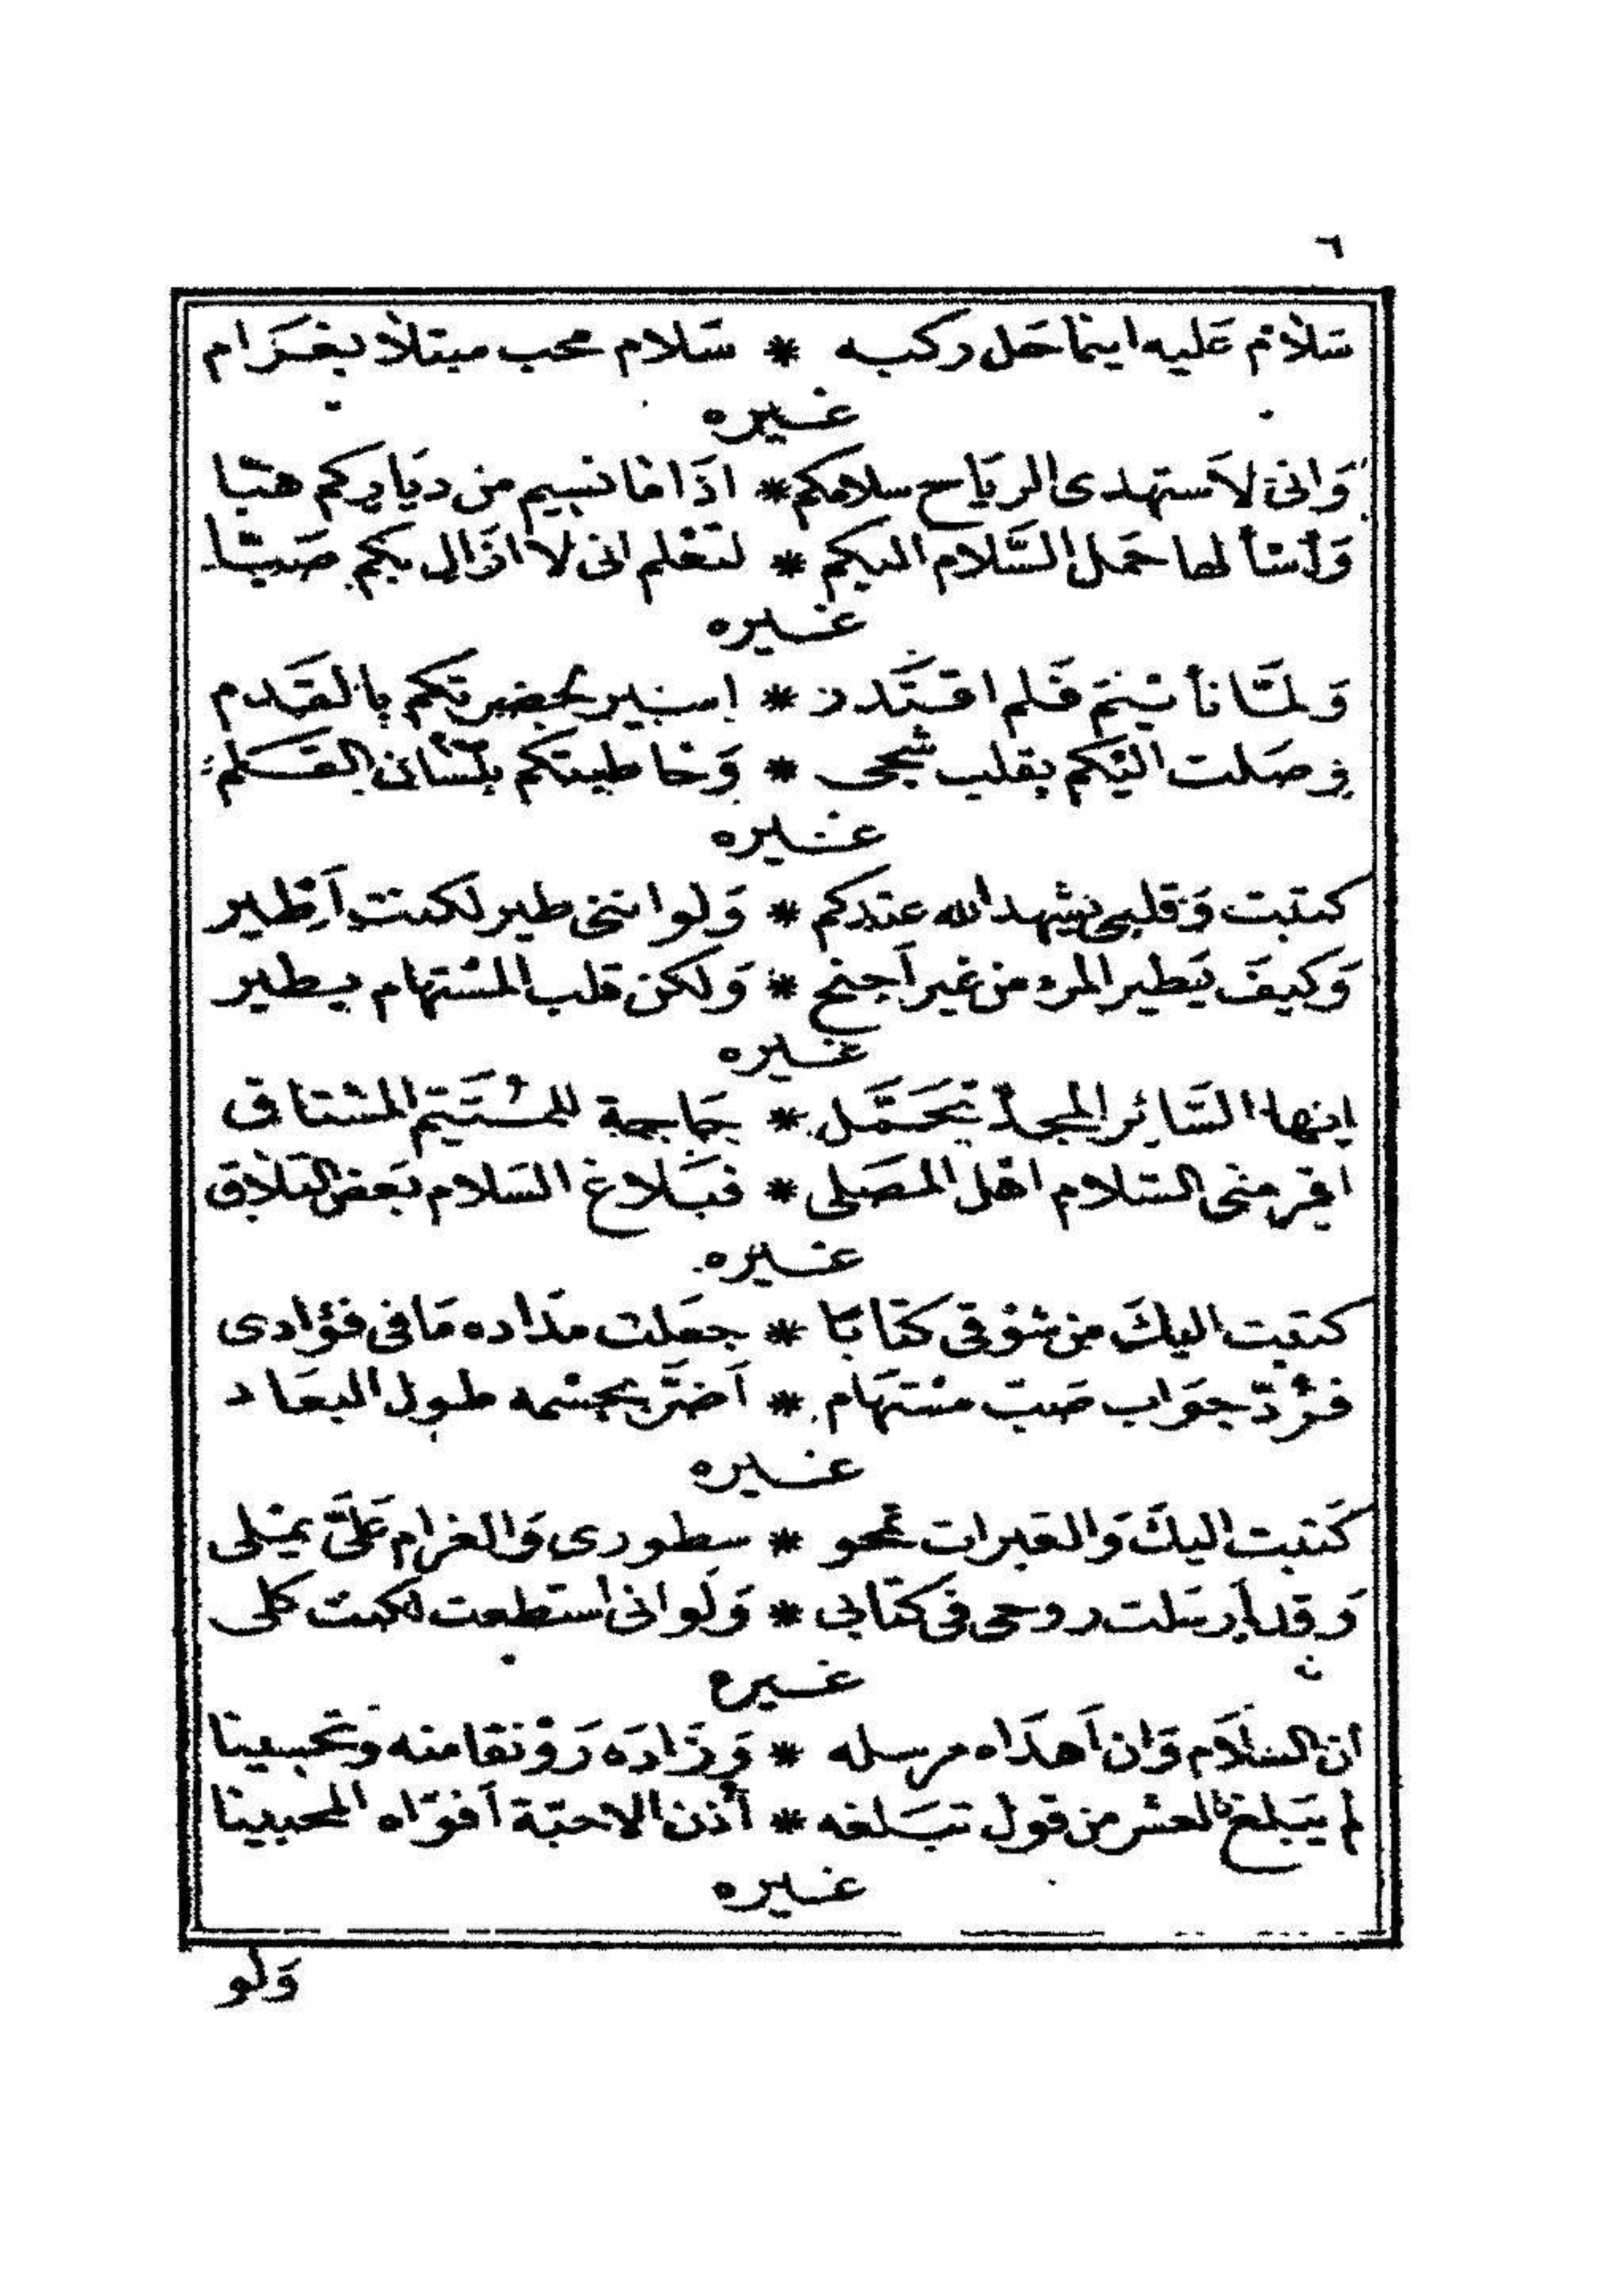 ٦
سَلَامٌ عَليه اينما حَل ركبه * سَلام محب مبتلا بغَرَام
غيره
وَانى لاَستهدى الرياح سلامكم * اذا ما نسيم من ديَاركم هبَّا
وَأسْألها حَمل السَّلام اليكم * لتعْلم انى لا ازَال بكم صَبَّا
غيره
وَلمَّا نأيْتمْ فَلم اقتَدر * اسير لحضرتكم بالقَدم
وصَلت اليْكم بقلب شجى * وَخاطبتكم بلسَان القَلم
غيره
كتبت وَقلبى يشهد الله عندكم * وَلو اننى طير لكنت اَطير
وَكيفَ يَطير المرء من غير اَجنح * وَلكن قلب المسْتهام يطير
غيره
ايها السَّائر المجدّ تحَمَّل * حَاجة للمُتَيَّم المشتاق
اقر منى السَلام اهْل المصَلى * فبَلاغ السَلام بَعض التلَاق
غيره
كتبت اليكَ من شوْقى كتابًا * جعَلت مدَاده مَا فى فؤادى
فرُدّ جوَاب صَبّ مسْتهَام * اَضرَّ بجسْمه طول البعَاد
غيره
كَتبت اليكَ وَالعَبرات تمحو * سطورى وَالغرام عَلىَّ يمْلى
وَقد أرسَلت روحى فى كتَابى * وَلو انى استطعت لكنت كلى
غيره
ان السَلَام وَان اَهدَاه مرسله * وَزَادَه رَوْنقا منه وَتحسينا
لم يبَلغ العشر من قول تبَلغه * أذن الاحبّة اَفوَاه المحبينا
غيره
وَلو